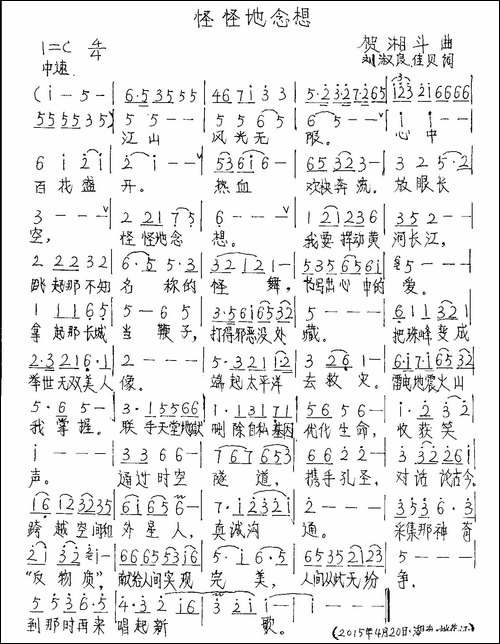 怪怪地念想
1=C 4/4 贺湘斗 曲
中速 刘淑良佳贝 词
(i - 5 - | 6·5 3 5 5 5 | 4 6 7 i 3 3 | 5·2 3·2 7·2 6 5 | i 2 3 2 i 6 6 6 6
5 5 5 5 3 5) | 5 5 - - | 5 5 6 5 | 6 5 - - ∨ | i - - i
江山 风光无 限。 心中
6 i 2 i | 2 i - - ∨ | 5 3 6 i 6 - | 6 5 3 2 3 - | 3 2 5·2
百花盛 开。 热血 欢快奔流, 放眼长
3 - - - ∨ | 2 2 1 7 5 | 6 - - - ∨ | 1 2 1 2 3 6 | 3 5 2 - -
空, 怪怪地念 想。 我要挥动黄 河长江,
2 2 2 3 2 | 6·5 5·3 | 3 2 1 2 1 - | 5 3 5 6 5 6 i | 5 - - -
跳起那不知 名称的 怪舞, 书写出心中的 爱。
1 1 1 6 5 | 5 - 6 5 | 3·5 6 i 6 5 3 2 | 5 - - - | 6 1 1 3 2 1
拿起那长城 当鞭子, 打得邪恶没处 藏。 把珠峰变成
2·3 2 1 6·1 | 2 - - - | 5·3 2 1 1 2 | 3 2 6 1 - | 6·i 7·i 6 5 3 2
举世无双美人 像。 端起太平洋 去救灾。 雷电地震火山
5·6 5 - | 3·1 5 5 6 6 | 1·1 3 1 7 1 | 5 6 5 6 - | i·2 3 2
我掌握。 联手天堂地狱 删除自私基因 优化生命, 收获笑
i - - - | 3 3 6 6 - | 7 6 7 6 5 3 | 6 6 2 2 - | 3 3 2 2 6 i
声。 通过时空 隧道, 携手孔圣, 对话论古今,
1 6 1 2 3 2 3 5 | 6 i 6 5 6 - | 7·i 2 3 2 i | 2 - - - | 3 5 3 6·3
跨越空间和 外星人, 真诚沟 通。 采集那神奇
2 i 3 2 i - | 6 6 6 5 3 5 i 6 | 5·i 6·5 | 6 5 3 5 2 1 2 3 | 5 - - -
“反物质”, 献给人间实现 完美, 人间从此无纷 争。
5 5 3 6·5 | 4·3 2 1 6 | i - - - |
到那时再来 唱起新 歌。 (2015年4月20日·湖南